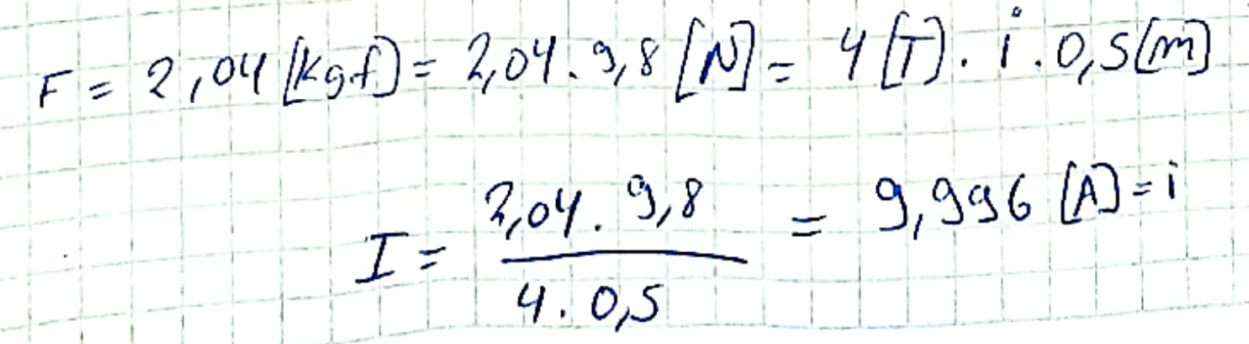 F = 2,04 [kgf] = 2,04 . 9,8 [N] = 4 [T] . i . 0,5 [m]
I = 2,04 . 9,8 / 4 . 0,5 = 9,996 [A] = i